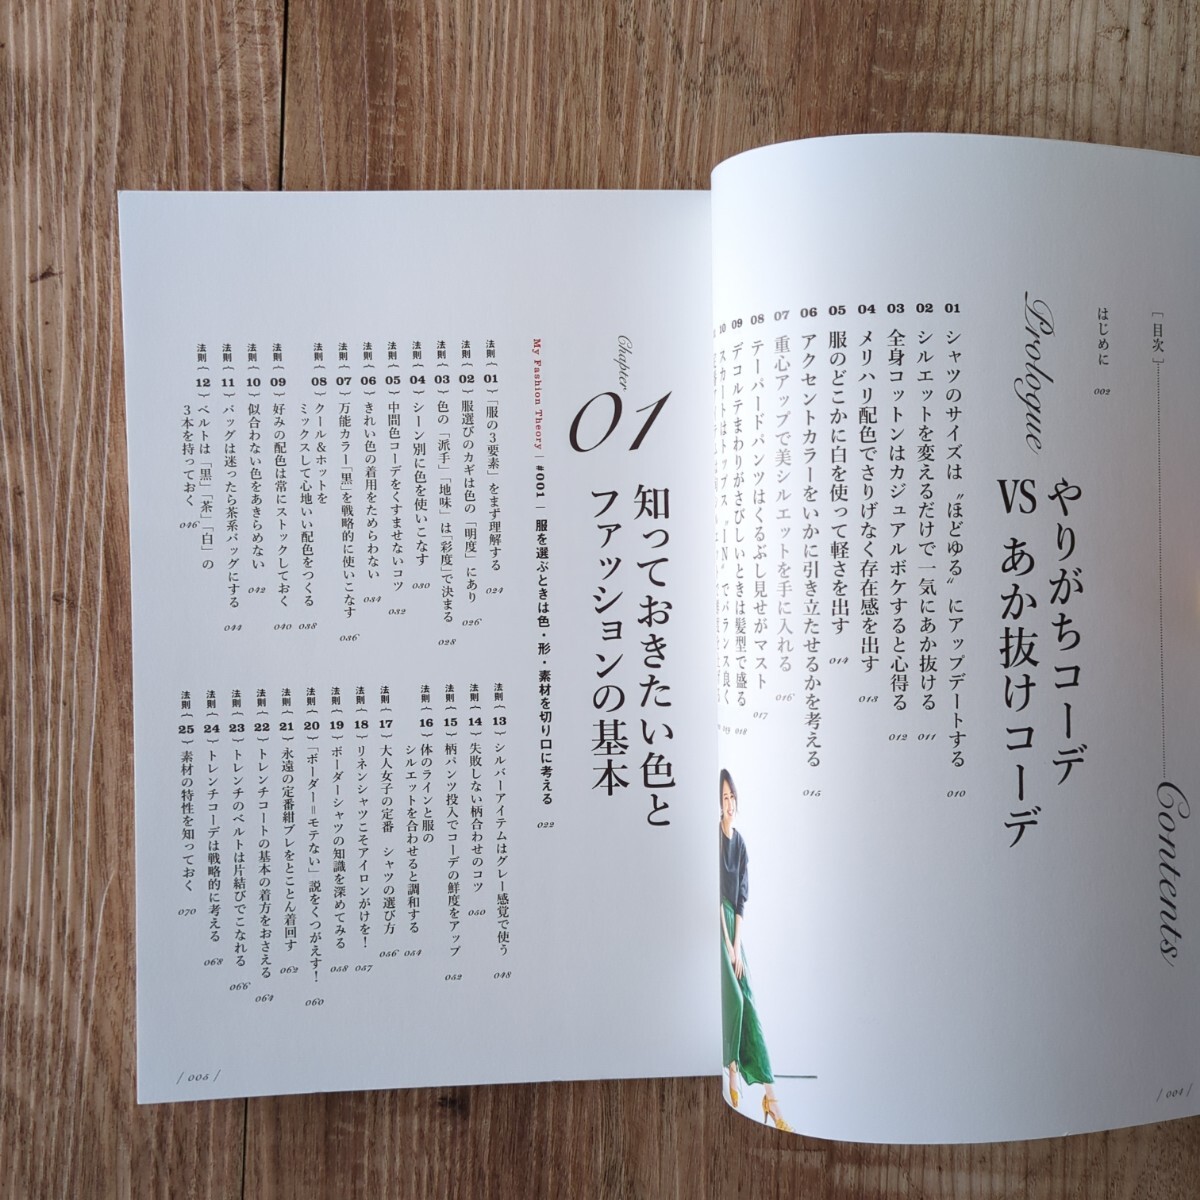 [目次]
Contents
はじめに
002
Prologue
やりがちコーデ
VS あか抜けコーデ
01 シャツのサイズは〝ほどゆる〟にアップデートする 010
02 シルエットを変えるだけで一気にあか抜ける 011
03 全身コットンはカジュアルボケすると心得る 012
04 メリハリ配色でさりげなく存在感を出す 013
05 服のどこかに白を使って軽さを出す 014
06 アクセントカラーをいかに引き立たせるかを考える 015
07 重心アップで美シルエットを手に入れる 016
08 テーパードパンツはくるぶし見せがマスト 017
09 デコルテまわりがさびしいときは髪型で盛る 018
10 スカートはトップス〝IN〟でバランス良く
/ 004 /
Chapter
01
知っておきたい色と
ファッションの基本
My Fashion Theory | #001 | 服を選ぶときは色・形・素材を切り口に考える 022
法則 ( 01 ) 「服の3要素」をまず理解する 024
法則 ( 02 ) 服選びのカギは色の「明度」にあり 026
法則 ( 03 ) 色の「派手」「地味」は「彩度」で決まる 028
法則 ( 04 ) シーン別に色を使いこなす 030
法則 ( 05 ) 中間色コーデをくすませないコツ 032
法則 ( 06 ) きれい色の着用をためらわない 034
法則 ( 07 ) 万能カラー「黒」を戦略的に使いこなす 036
法則 ( 08 ) クール&ホットを
ミックスして心地いい配色をつくる 038
法則 ( 09 ) 好みの配色は常にストックしておく 040
法則 ( 10 ) 似合わない色をあきらめない 042
法則 ( 11 ) バッグは迷ったら茶系バッグにする 044
法則 ( 12 ) ベルトは「黒」「茶」「白」の
3本を持っておく 046
法則 ( 13 ) シルバーアイテムはグレー感覚で使う 048
法則 ( 14 ) 失敗しない柄合わせのコツ 050
法則 ( 15 ) 柄パンツ投入でコーデの鮮度をアップ 052
法則 ( 16 ) 体のラインと服の
シルエットを合わせると調和する 054
法則 ( 17 ) 大人女子の定番 シャツの選び方 056
法則 ( 18 ) リネンシャツこそアイロンがけを! 057
法則 ( 19 ) ボーダーシャツの知識を深めてみる 058
法則 ( 20 ) 「ボーダー=モテない」説をくつがえす! 060
法則 ( 21 ) 永遠の定番紺ブレをとことん着回す 062
法則 ( 22 ) トレンチコートの基本の着方をおさえる 064
法則 ( 23 ) トレンチのベルトは片結びでこなれる 066
法則 ( 24 ) トレンチコーデは戦略的に考える 068
法則 ( 25 ) 素材の特性を知っておく 070
/ 005 /